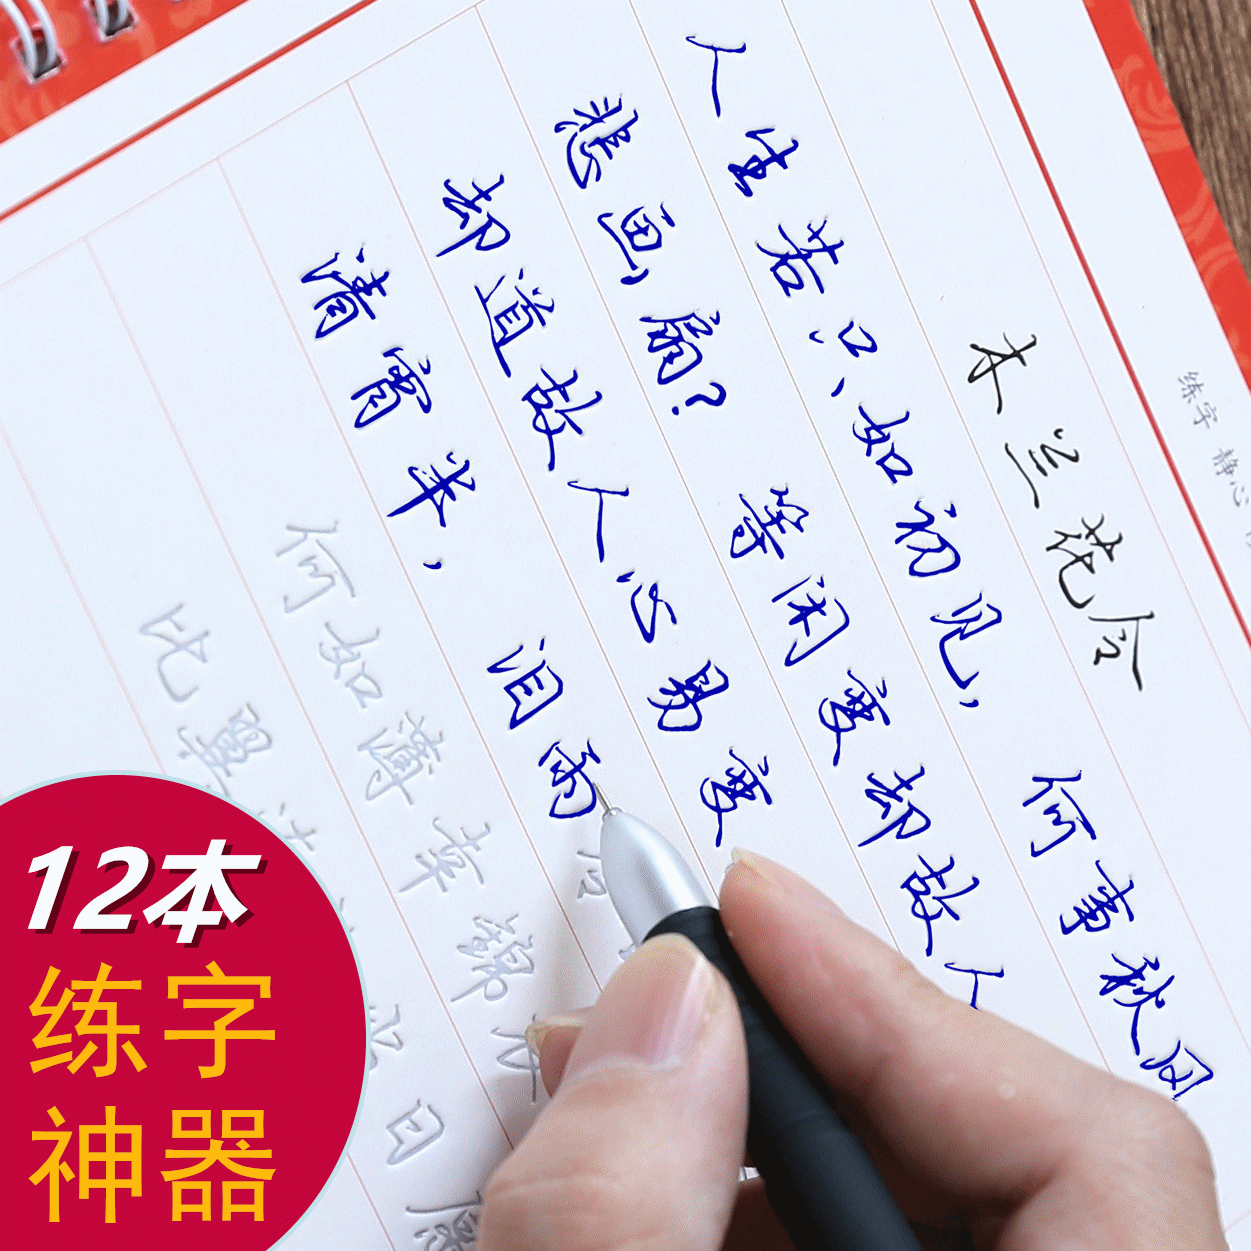 练字 静心
木兰花令
人生若只如初见,何事秋风
悲画扇?等闲变却故人
却道故人心易变
清宵半,泪雨
何如薄幸锦衣
比翼连
日愿
12本
练字
神器